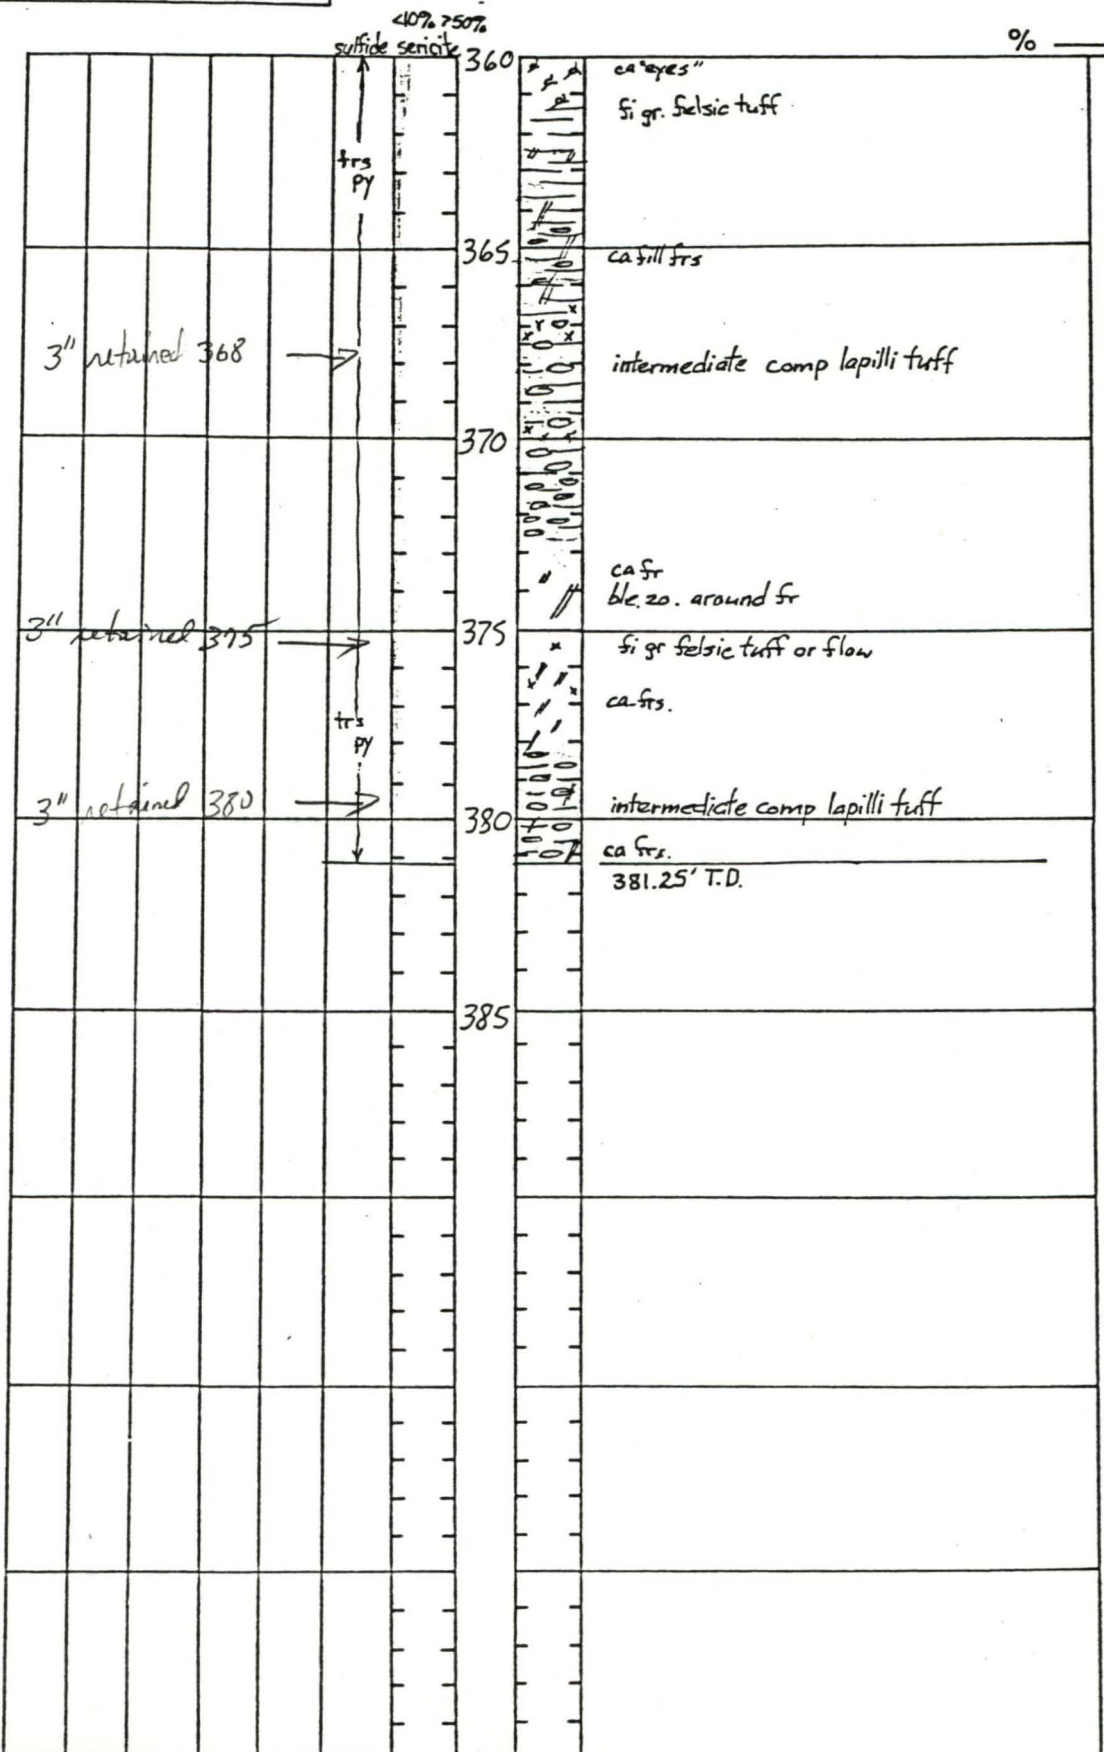 <10% >50%
sulfide sericite
%
360
ca "eyes"
fi gr. felsic tuff
trs
py
365
ca fill frs
3" retained 368
intermediate comp lapilli tuff
370
ca fr
ble. zo. around fr
3" retained 375
375
fi gr felsic tuff or flow
ca frs.
trs
py
3" retained 380
380
intermediate comp lapilli tuff
ca frs.
381.25' T.D.
385